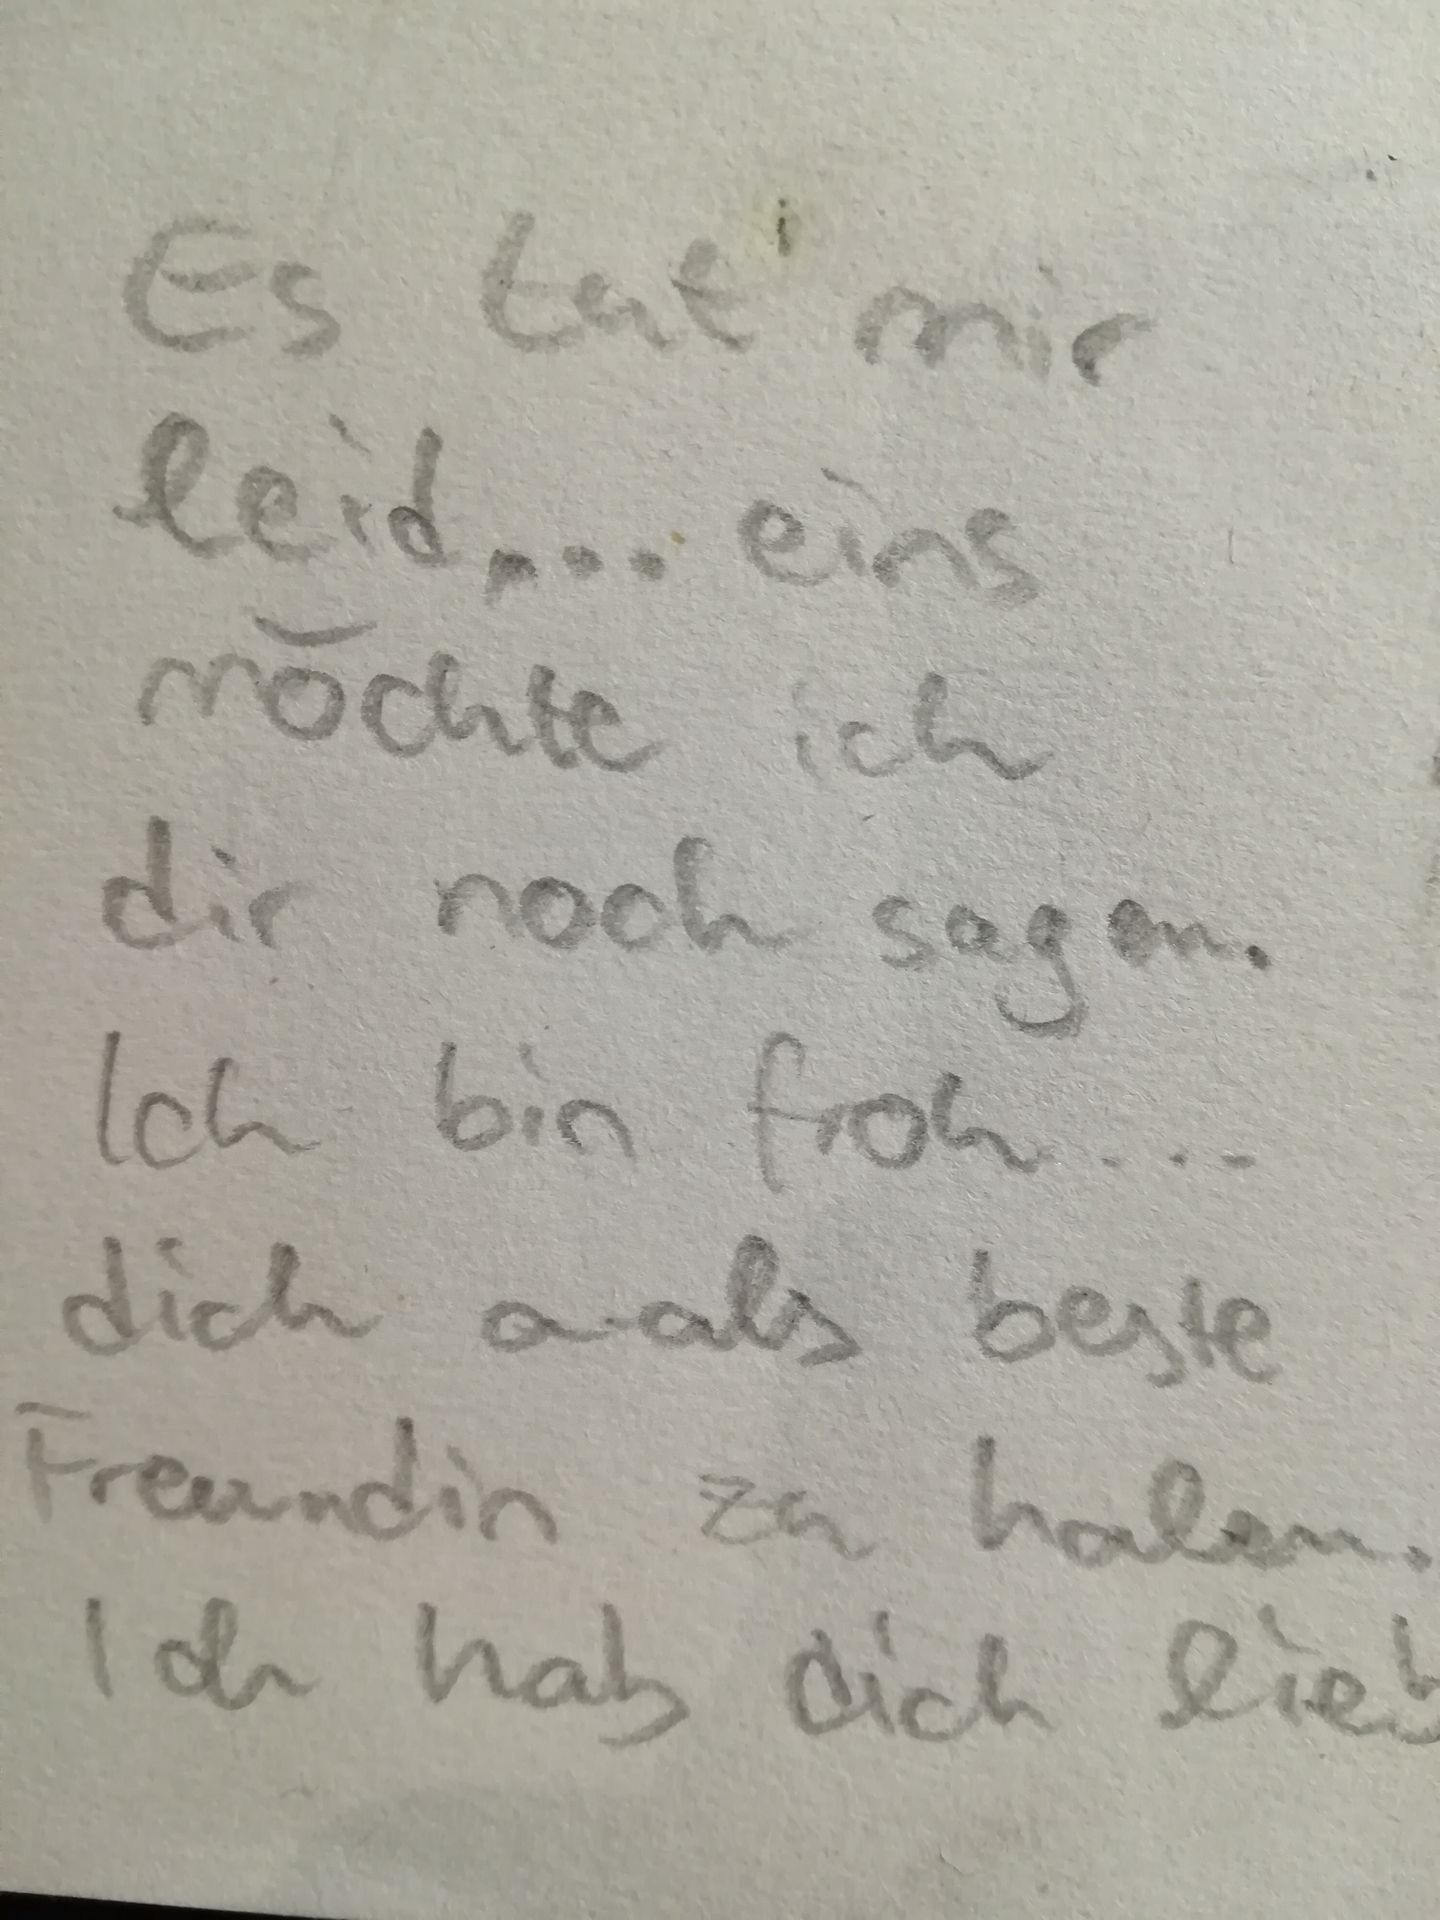 Es tat mir
leid,... eins
möchte ich
dir noch sagen.
Ich bin froh...
dich a als beste
Freundin zu haben.
Ich hab dich lieb